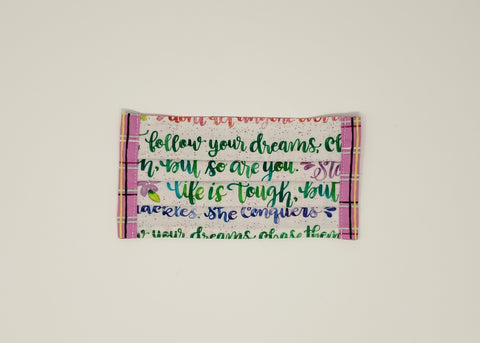 don't let anyone ever
follow your dreams, ch
n, but so are you. Sta
life is tough, but
ackles. She Conquers
w your dreams, chase them